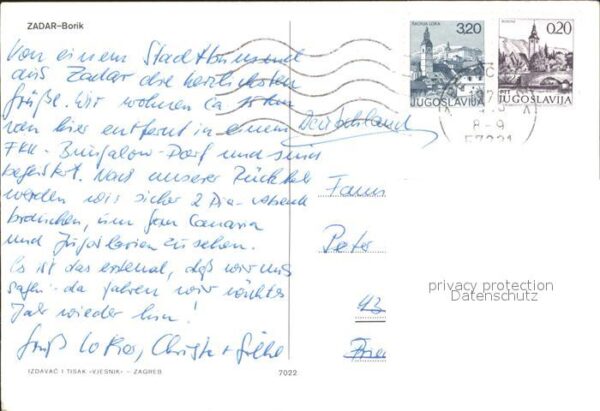 ZADAR–Borik
Von einem Stadtbummel
aus Zadar die herzlichsten
Grüße. Wir wohnen ca
von hier entfernt in einem
FKK-Bungalow-Dorf und sind
begeistert. Nach unserer Rückkehr
werden wir sicher 2 Dia-
brauchen, um Gran Canaria
und Jugoslavien zu sehen.
Es ist das erstemal, daß wir uns
sagen - da fahren wir nächstes
Jahr wieder hin!
Gruß Christa +
ŠKOFJA LOKA
3,20
JUGOSLAVIJA
0,20
JUGOSLAVIJA
8-9
Deutschland
Fam
Peter
privacy protection
Datenschutz
IZDAVAČ I TISAK «VJESNIK» – ZAGREB
7022